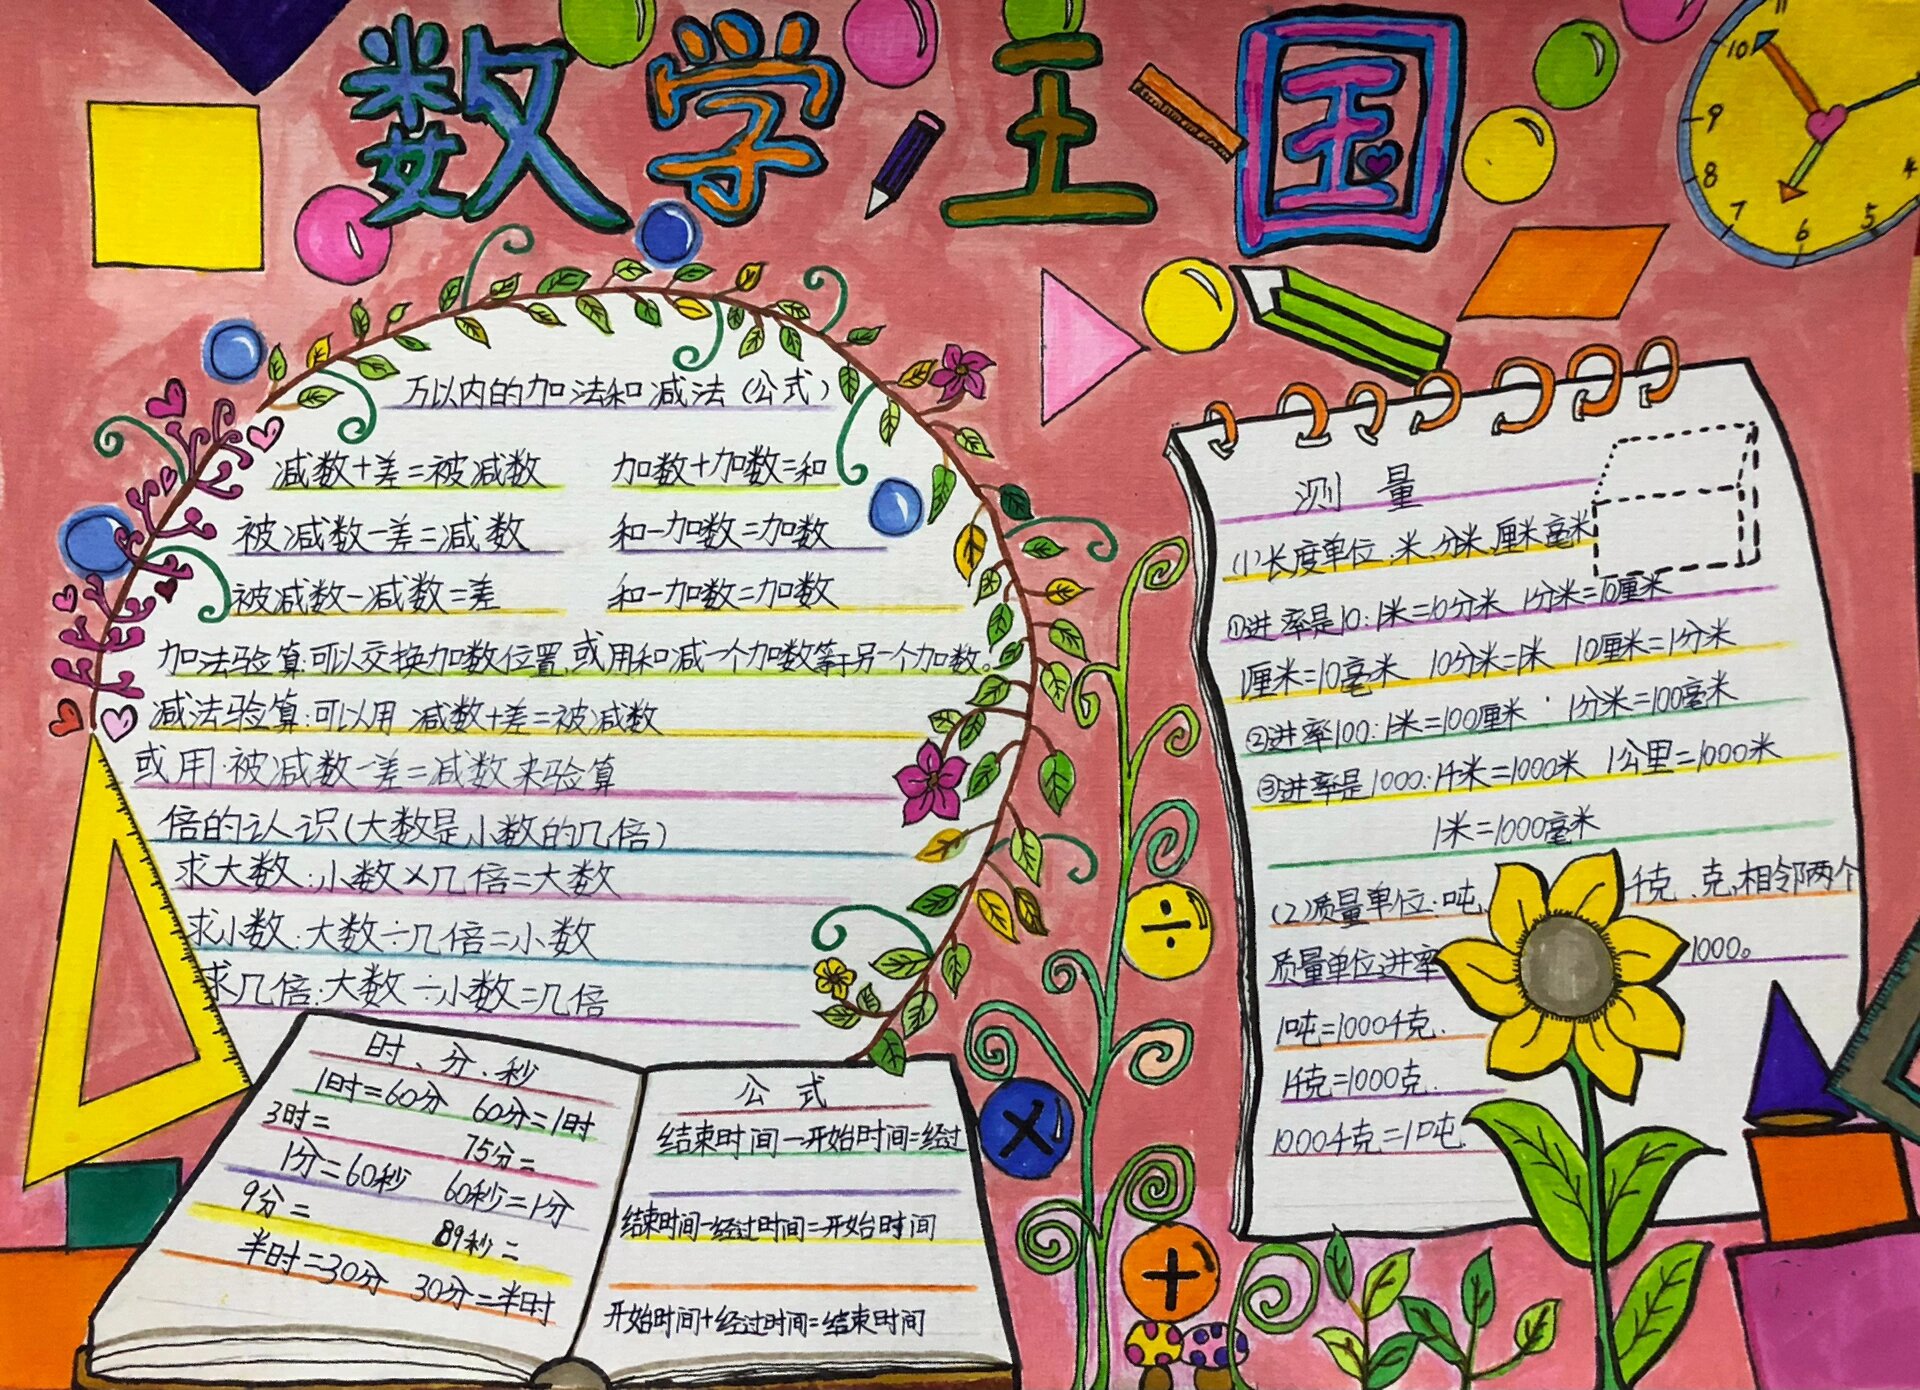 数学王国
11
10
9
8
7
6
5
4
万以内的加法和减法(公式)
减数+差=被减数 加数+加数=和
被减数-差=减数 和-加数=加数
被减数-减数=差 和-加数=加数
加法验算:可以交换加数位置,或用和减一个加数等于另一个加数。
减法验算:可以用 减数+差=被减数
或用:被减数-差=减数来验算
倍的认识(大数是小数的几倍)
求大数:小数×几倍=大数
求小数:大数÷几倍=小数
求几倍:大数÷小数=几倍
时、分、秒
1时=60分 60分=1时
3时= 75分=
1分=60秒 60秒=1分
9分= 89秒=
半时=30分 30分=半时
公式
结束时间-开始时间=经过
结束时间-经过时间=开始时间
开始时间+经过时间=结束时间
测量
(1)长度单位、米、分米、厘米毫米
①进率是10:1米=10分米 1分米=10厘米
1厘米=10毫米 10分米=1米 10厘米=1分米
②进率100:1米=100厘米 1分米=100毫米
③进率是1000:1千米=1000米 1公里=1000米
1米=1000毫米
(2)质量单位:吨、千克、克,相邻两个
质量单位进率 1000。
1吨=1000千克.
1千克=1000克.
1000千克=1吨.
÷
×
+